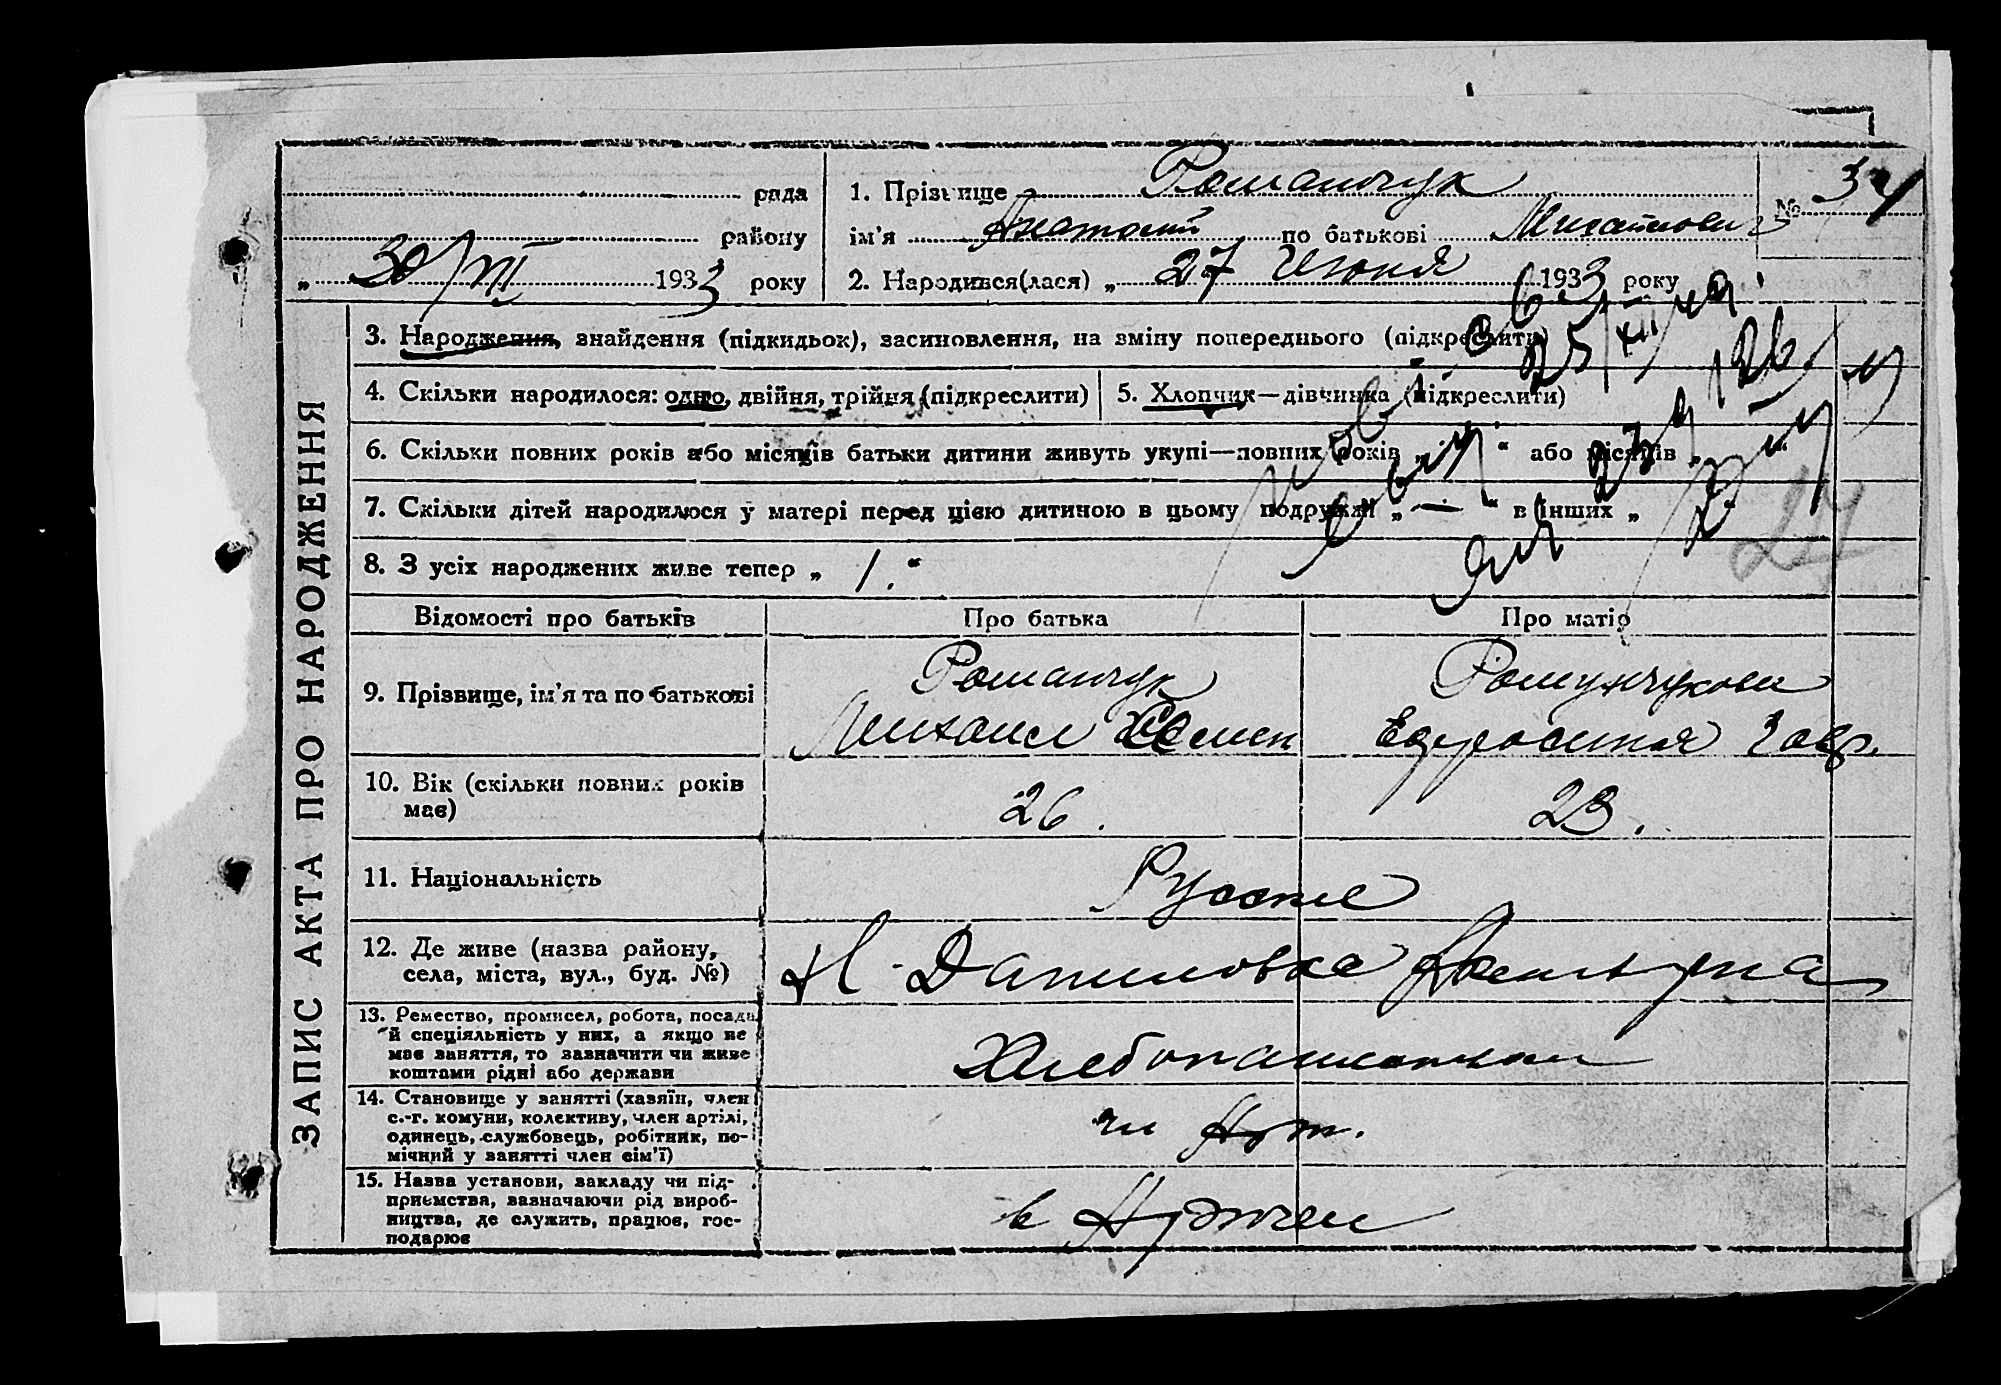 ЗАПИС АКТА ПРО НАРОДЖЕННЯ
рада
району
„ 30/VI 1933 року
1. Прізвище Романчук
ім'я Анатолий по батькові Михайлович
2. Народився(лася) „ 27 Июня 1933 року
№ 34
3. Народження, знайдення (підкидьок), засиновлення, на зміну попереднього (підкреслити)
4. Скільки народилося: одно, двійня, трійня (підкреслити)
5. Хлопчик—дівчинка (підкреслити)
6. Скільки повних років або місяців батьки дитини живуть укупі—повних років „ “ або місяців „ “
7. Скільки дітей народилося у матері перед цією дитиною в цьому подружжі „ — “ в інших „
8. З усіх народжених живе тепер „ 1. “
25/XII
24
Відомості про батьків
Про батька
Про матір
9. Прізвище, ім'я та по батькові
Романчук
Михаил Семен
Романчукова
Ефросиния Гавр.
10. Вік (скільки повних років має)
26.
23.
11. Національність
Русские
12. Де живе (назва району, села, міста, вул., буд. №)
Н-Даниловка
13. Ремество, промисел, робота, посада
й спеціяльність у них, а якщо не
має заняття, то зазначити чи живе
коштами рідні або держави
Хлебопашество
14. Становище у занятті (хазяїн, член
с.-г. комуни, колективу, член артілі,
одинець, службовець, робітник, по-
мічний у занятті член сім'ї)
чл Арт.
15. Назва установи, закладу чи під-
приємства, зазначаючи рід вироб-
ництва, де служить, працює, гос-
подарює
в Артели